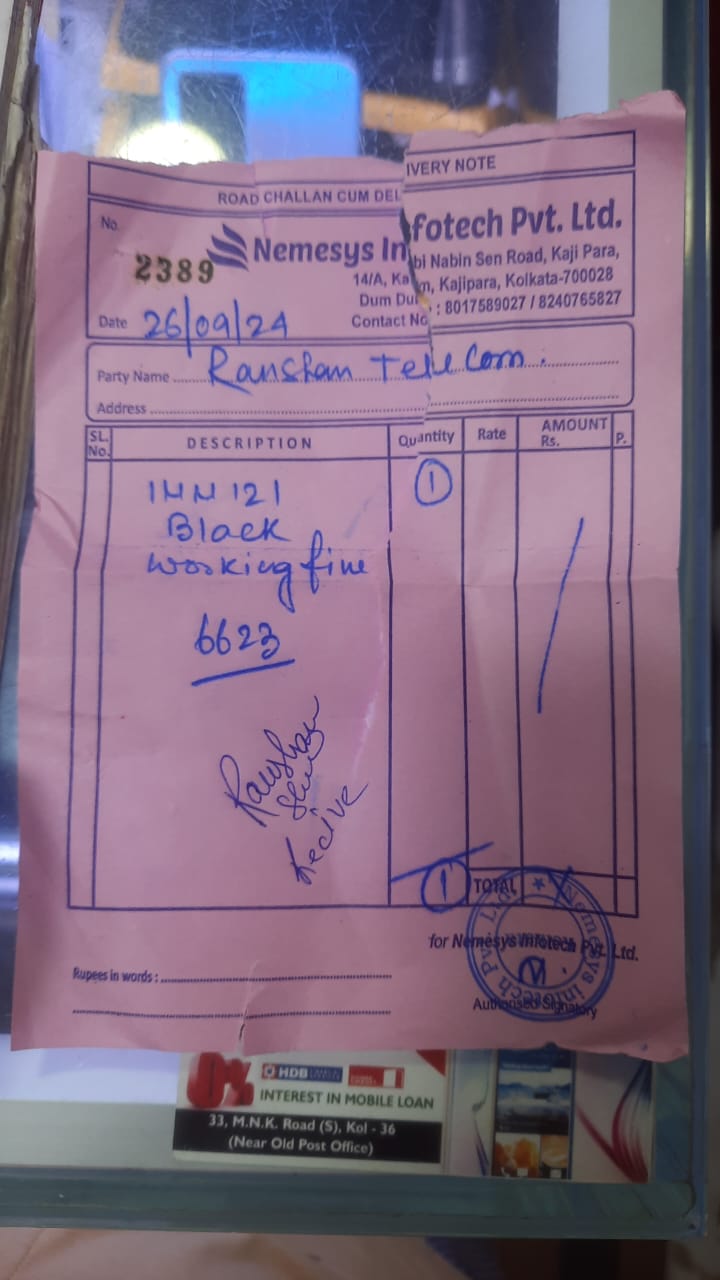 ROAD CHALLAN CUM DEL IVERY NOTE
No. 2389
Nemesys In fotech Pvt. Ltd.
14/A, Ka bi Nabin Sen Road, Kaji Para,
Dum Du m, Kajipara, Kolkata-700028
Contact No : 8017589027 / 8240765827
Date 26/09/24
Party Name Ranshan Telecom.
Address
SL. No. DESCRIPTION Quantity Rate AMOUNT Rs. P.
1MM121 1
Black
Working fine
6623
Raushan
Recive
1 TOTAL
for Nemesys Infotech Pvt. Ltd.
Nemesys Infotech Pvt. Ltd.
Rupees in words :
Authorised Signatory
0% HDB
INTEREST IN MOBILE LOAN
33, M.N.K. Road (S), Kol - 36
(Near Old Post Office)